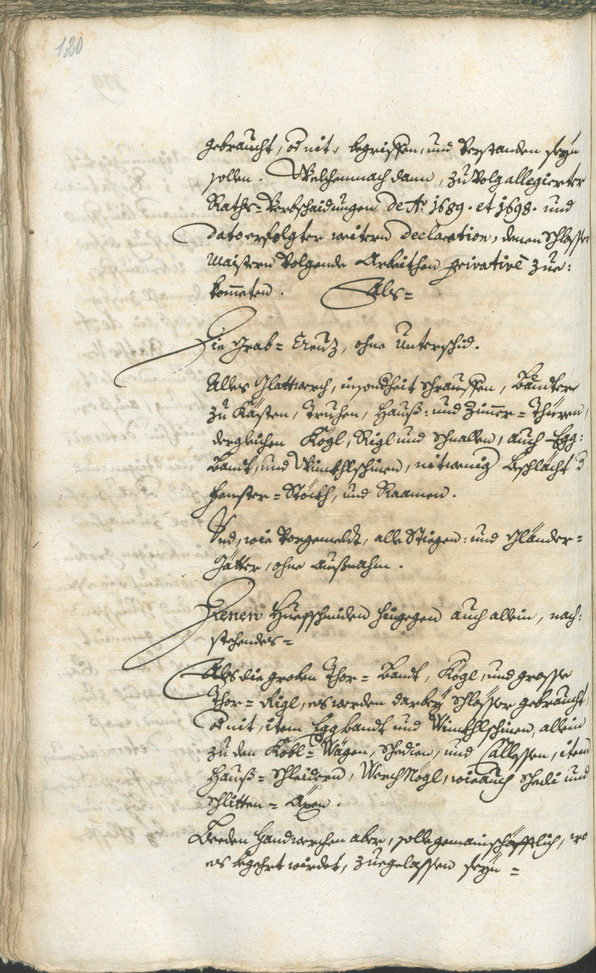 120
gebraucht, od nit, begriffen, und verstanden seyn
sollen. Welchemnach dann, zu volg allegierter
Raths-Verbschaidungen de Ao 1689. et 1698. und
dato erfolgter weitern declaration, denen Schlosser
Maistern volgende Arbeithen privativè zue:
kometen. Als=
Die Grab=Creuz, ohne Unterschid.
Alles Glattwerch, insondheit Schrauffen, Bänder
zu Kästen, Truhen, Hauß: und Zimer=Thüren,
dergleichen Kögl, Rigl und Schnallen, auch Egg:
Bandt, und Winkhlschinen, nit wenig Beschlächt d
Fenster=Stöckh, und Raamen.
Und, wie vorgemeldt, alle Stiegen: und Gländer=
Gätter, ohne Außnahm.
Denen Huefschmiden hingegen auch allein, nach:
stehendes=
Als die groben Thor=Bandt, Kögl, und grosse
Thor=Rigl, es werden darbey Schlösser gebraucht,
od nit, item Eggbandt und Winkhlschinen, allein
zu den Kobl=Wägen, und item
Hauß= wie auch und
Schlitten=Äxen.
Beeden Handwerchen aber, solle gemainschafftlich, wo
es begehrt wirdet, zuegelassen seyn=